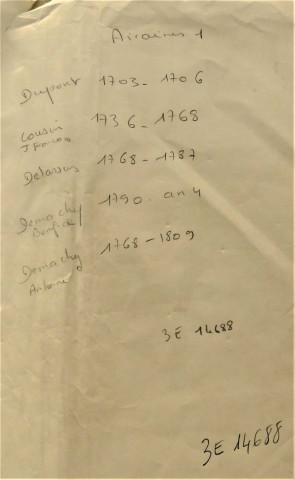 Airaines 1
Dupont 1703 - 1706
Cousin 1736 - 1768
J François
Delassus 1768 - 1787
Demachy 1790 - an 4
Demachy 1768 - 1809
Antoine
3E 14688
3E 14688